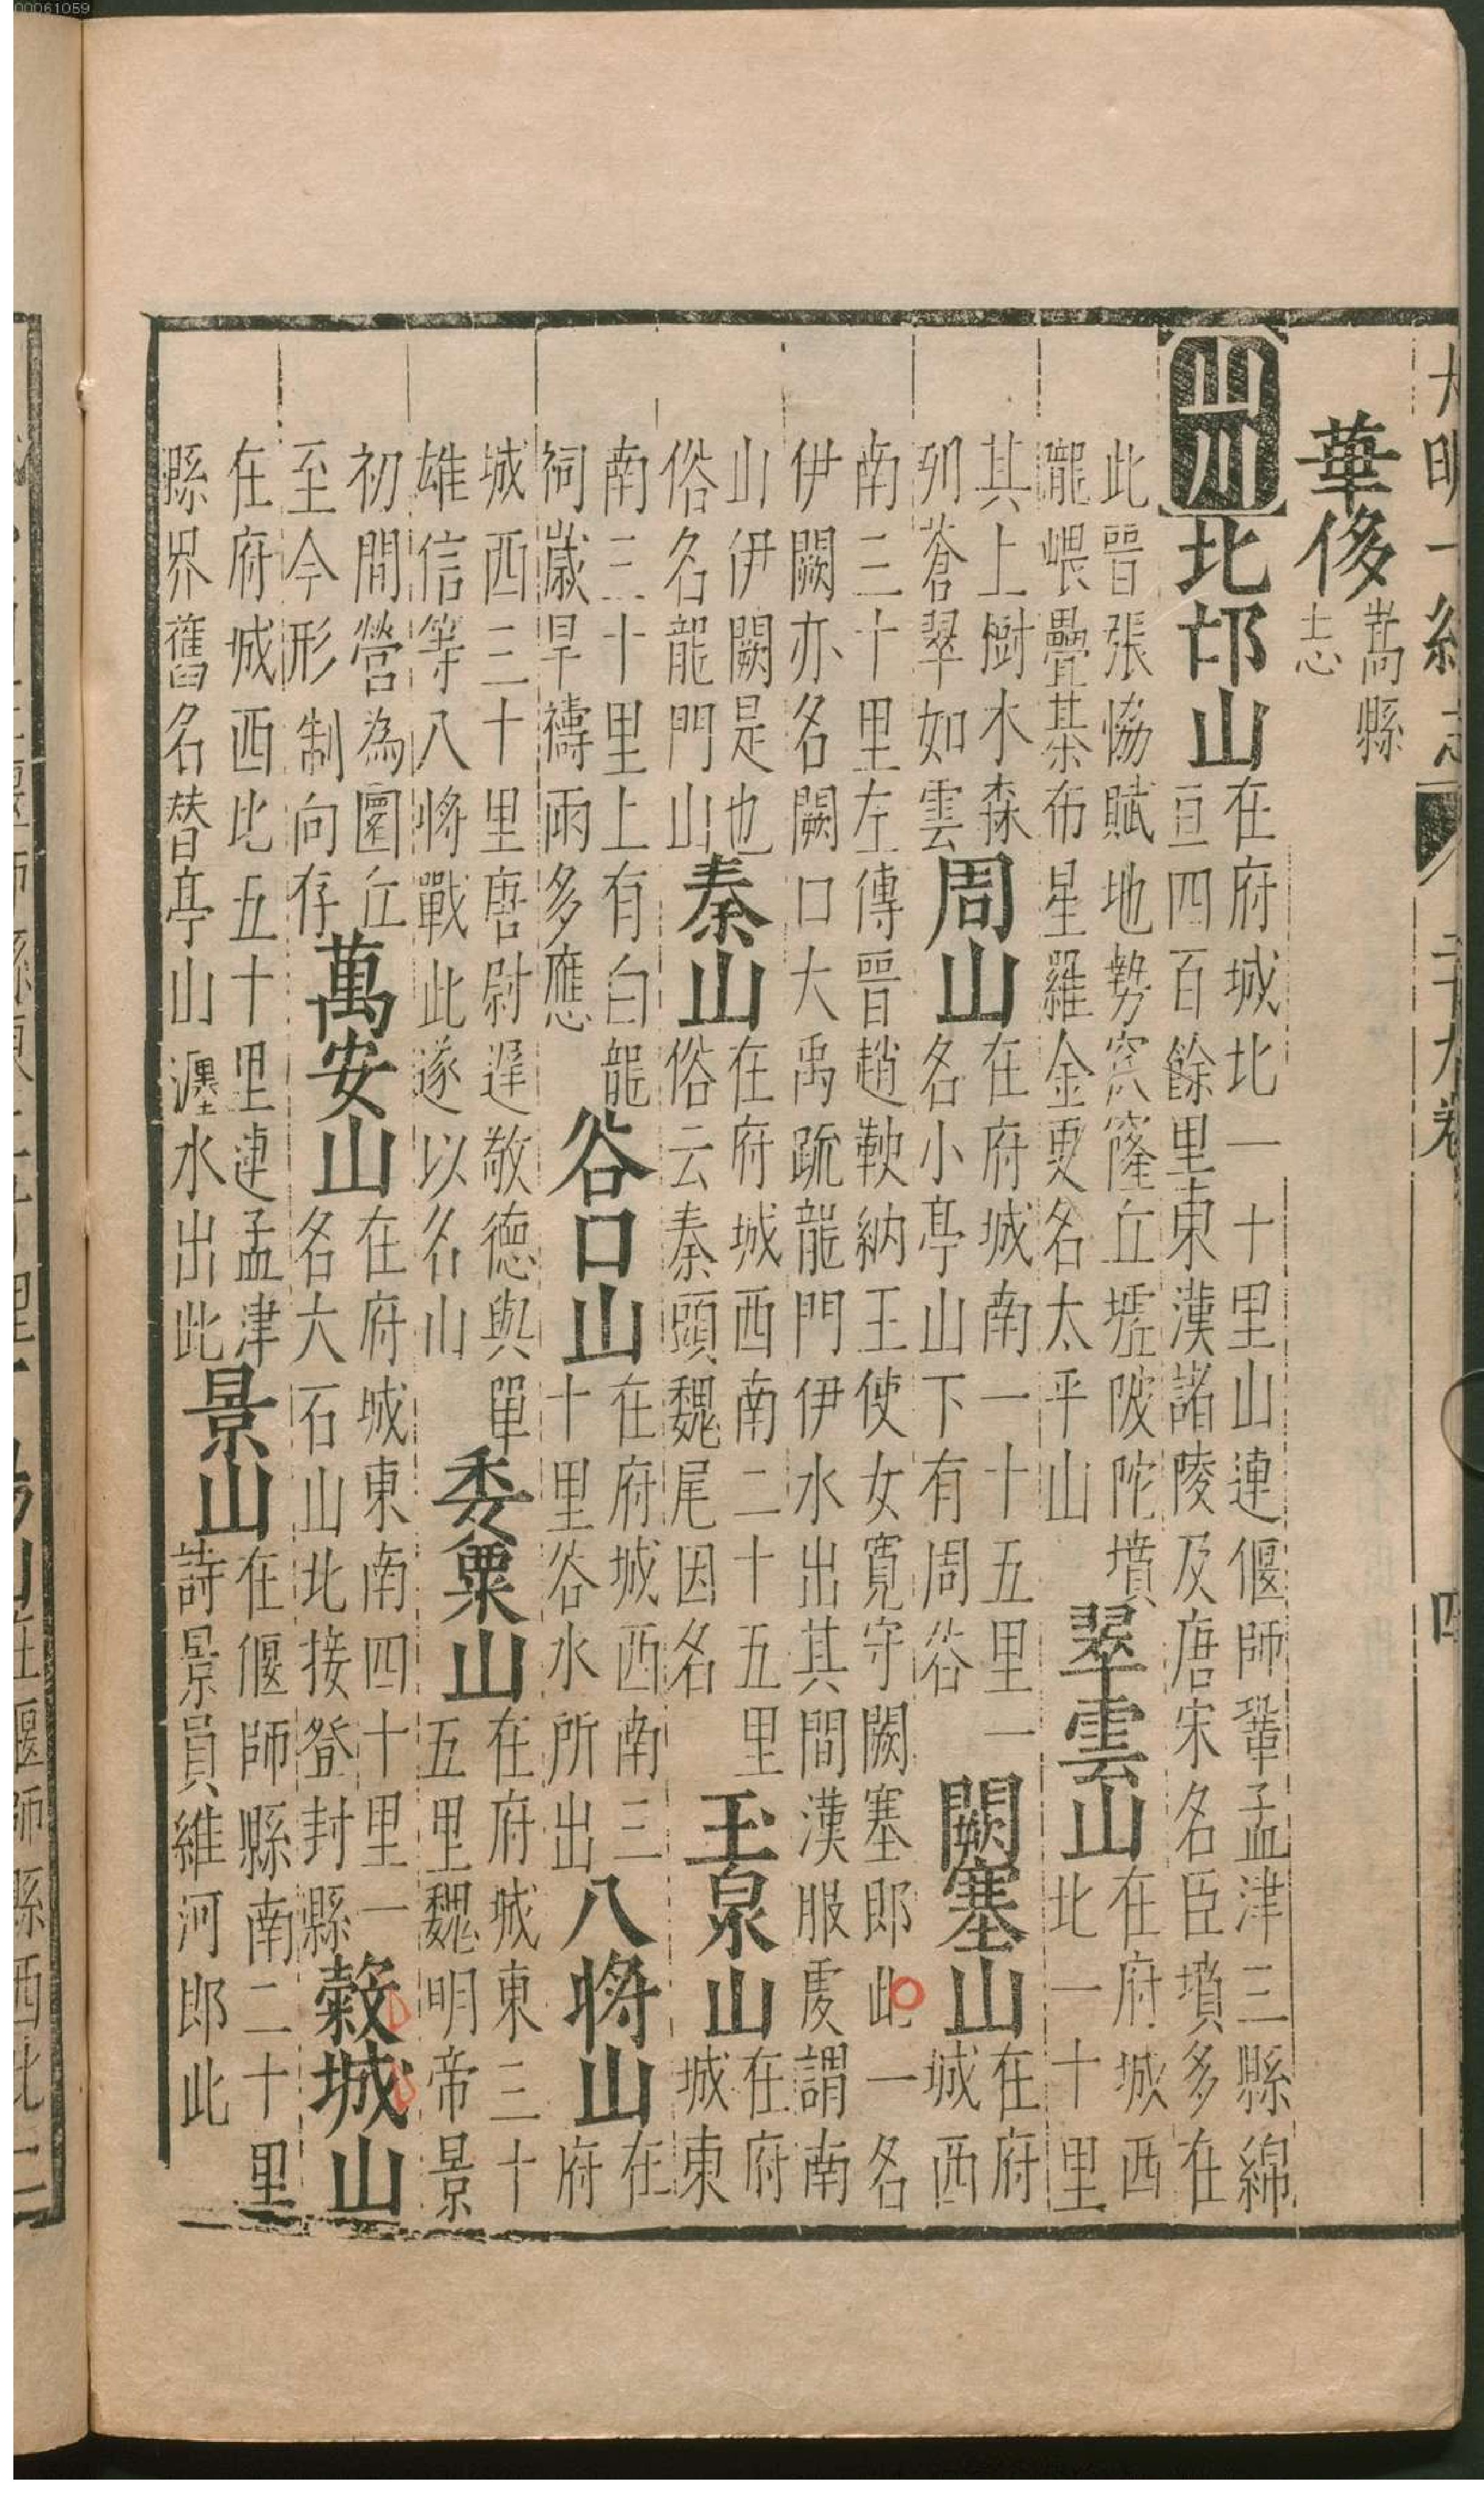 大明一統志 二十九卷 四
華侈
嵩縣
志
山川
北邙山
在府城北一十里山連偃師鞏孟津三縣綿
亘四百餘里東漢諸陵及唐宋名臣墳多在
此晉張恊賦地勢窊窿丘墟陂陀墳
隴㟪疊棊布星羅金更名太平山
翠雲山
在府城西
北一十里
其上樹木森
列蒼翠如雲
周山
在府城南一十五里一
名小亭山下有周谷
闕塞山
在府
城西
南三十里左傳晉趙鞅納王使女寬守闕塞郎此一名
伊闕亦名闕口大禹疏龍門伊水出其間漢服虔謂南
山伊闕是也
俗名龍門山
秦山
在府城西南二十五里
俗云秦頭魏尾因名
玉泉山
在府
城東
南三十里上有白龍
祠歲旱禱雨多應
谷口山
在府城西南三
十里谷水所出
八將山
在
府
城西三十里唐尉遲敬德與單
雄信等八將戰此遂以名山
委粟山
在府城東三十
五里魏明帝景
初間營為圜丘
至今形制向存
萬安山
在府城東南四十里一
名大石山北接登封縣
榖城山
在府城西北五十里連孟津
縣界舊名替亭山瀍水出此
景山
在偃師縣南二十里
詩景員維河郎此
在偃師縣西北二
00061059